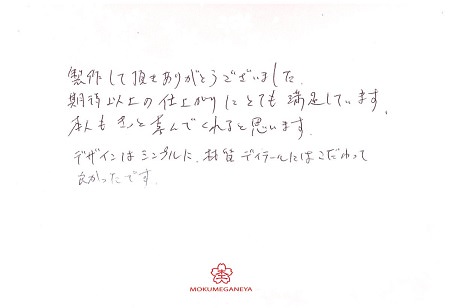 製作して頂きありがとうございました。
期待以上の仕上がりにとても満足しています。
本人もきっと喜んでくれると思います。
デザインはシンプルに、材質 ディテールにはこだわって
良かったです。
MOKUMEGANEYA